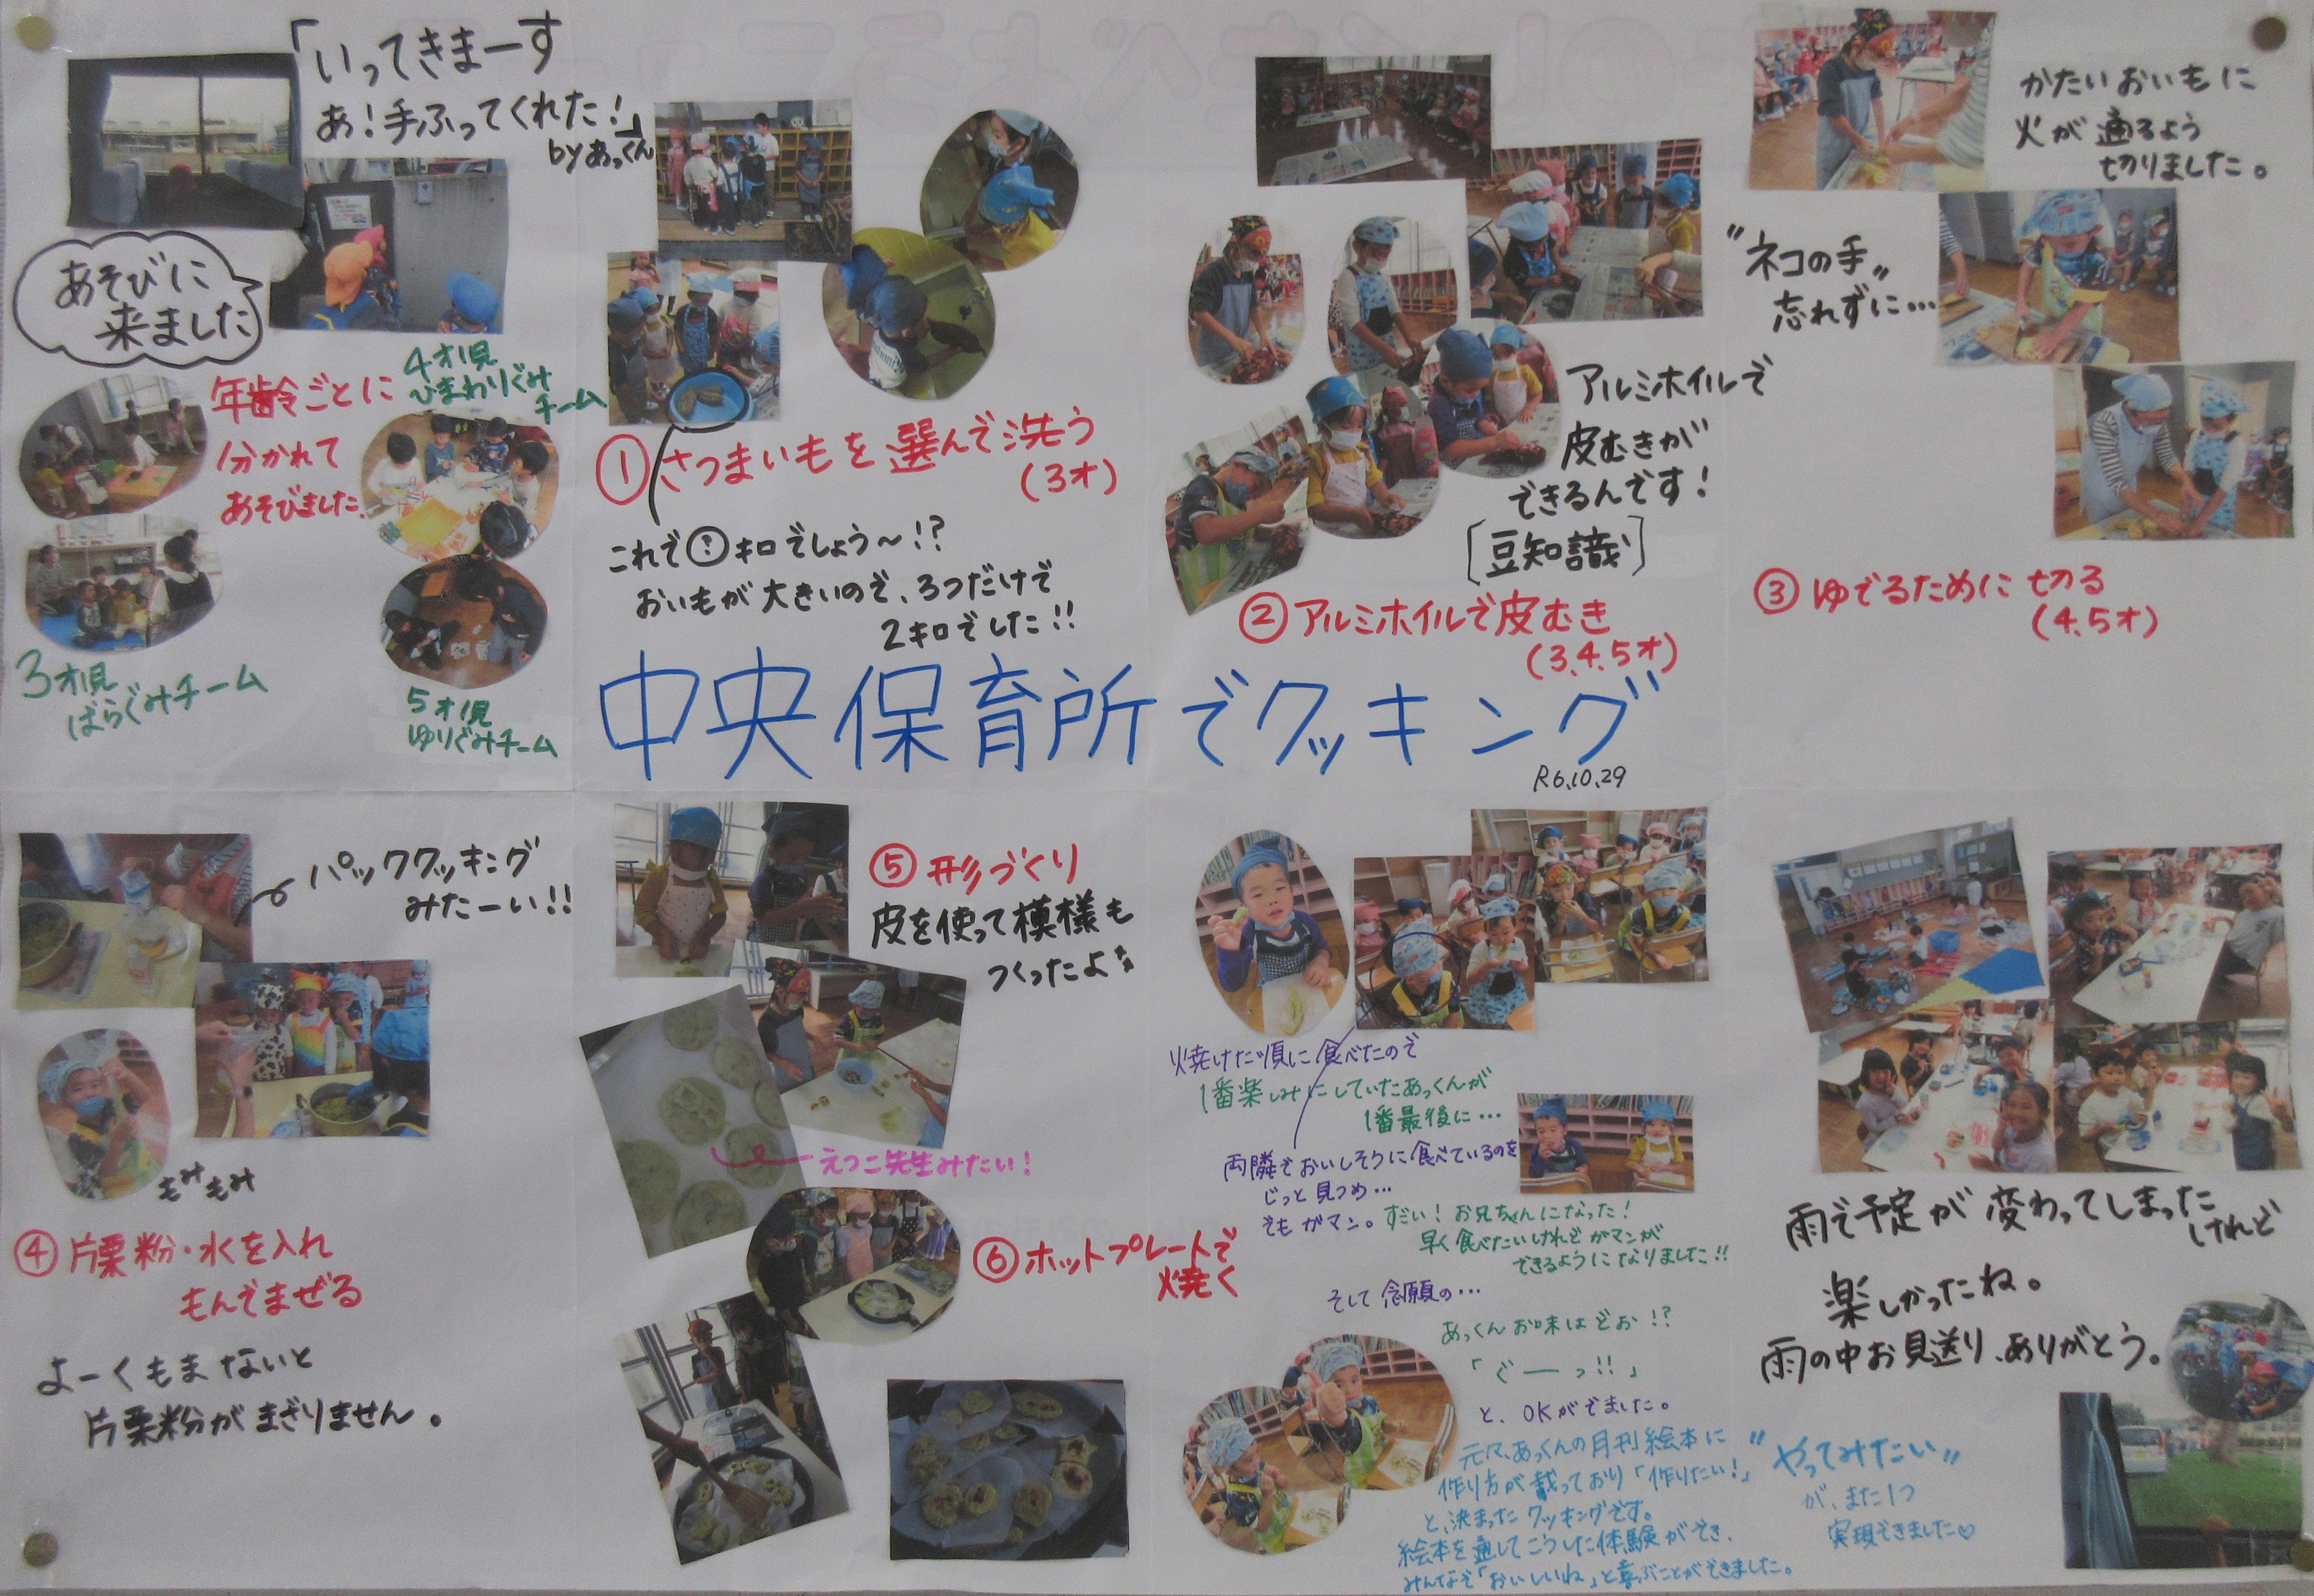 「いってきまーす
あ！手ふってくれた！」
byあっくん
あそびに
来ました
年齢ごとに
分かれて
あそびました。
4才児
ひまわりぐみ
チーム
3才児
ばらぐみチーム
5才児
ゆりぐみチーム
①さつまいもを選んで洗う
(3才)
これで?キロでしょう〜!?
おいもが大きいので、3つだけで
2キロでした!!
アルミホイルで
皮むきが
できるんです！
[豆知識]
②アルミホイルで皮むき
(3.4.5才)
かたいおいもに
火が通るよう
切りました。
"ネコの手"
忘れずに…
③ゆでるために切る
(4.5才)
中央保育所でクッキング
R6.10.29
パッククッキング
みたーい!!
もみもみ
④片栗粉・水を入れ
もんでまぜる
よーくもまないと
片栗粉がまざりません。
⑤形づくり
皮を使って模様も
つくったよ
えつこ先生みたい！
⑥ホットプレートで
焼く
焼けた順に食べたので
1番楽しみにしていたあっくんが
1番最後に…
両隣でおいしそうに食べているのを
じっと見つめ…
でもガマン。
すごい！お兄ちゃんになった！
早く食べたいけれどガマンが
できるようになりました!!
そして念願の…
あっくんお味はどお!?
「ぐーっ!!」
と、OKがでました。
元々、あっくんの月刊絵本に
作り方が載っており「作りたい！」
と、決まったクッキングです。
絵本を通してこうした体験ができ、
みんなで「おいしいね」と喜ぶことができました。
雨で予定が変わってしまった
けれど
楽しかったね。
雨の中お見送り、ありがとう。
"やってみたい"
が、また1つ
実現できました♡